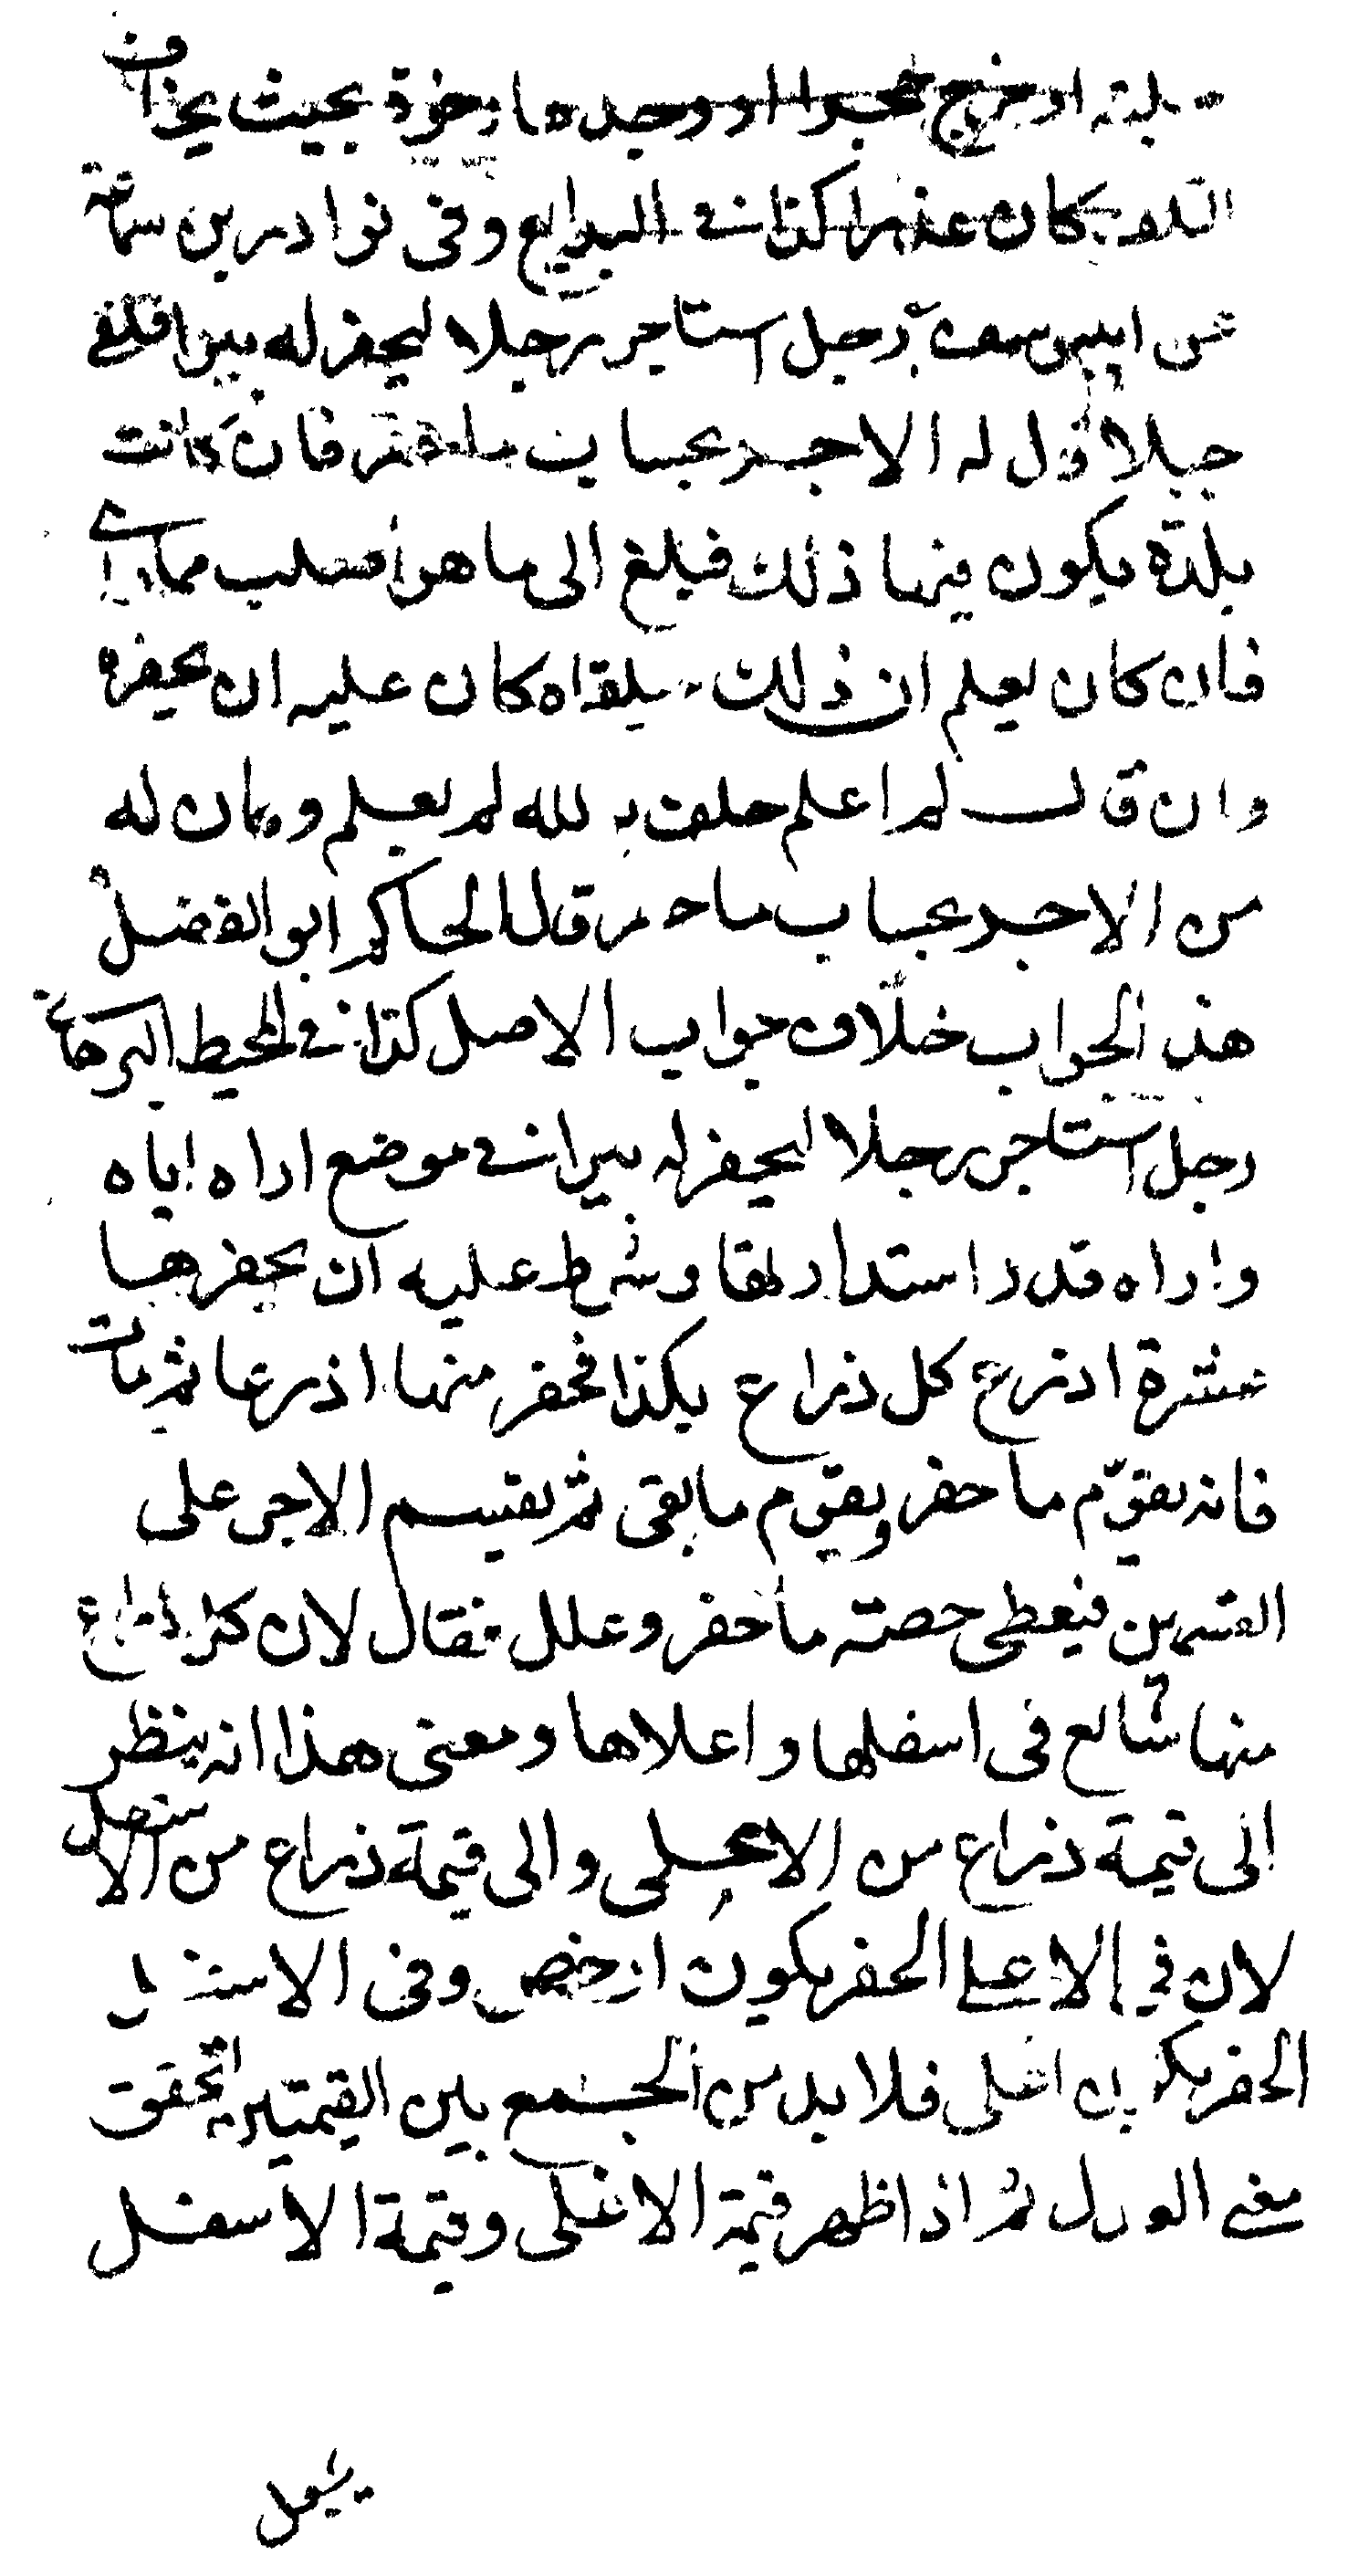 صلبة او خرج حجرا او وجدها رخوة بحيث يخاف
التلف كان عذرا كذا في البدايع وفي نوادر بن سماعة
عن ابي يوسف رجل استاجر رجلا ليحفر له بيرا فلقي
جبلا قال له الاجر بحساب ما حفر فان كانت
بلدة يكون فيها ذلك فيلغ الى ما هو اصلب مما راى
فان كان يعلم ان ذلك يلقاه كان عليه ان يحفره
وان قال لم اعلم حلف بالله لم يعلم وكان له
من الاجر بحساب ما حفر قال الحاكم ابو الفضل
هذا الجواب خلاف جواب الاصل كذا في المحيط البرهاني
رجل استاجر رجلا ليحفر له بيرا في موضع اراه اياه
واراه قدر استدارتها وشرط عليه ان يحفرها
عشرة اذرع كل ذراع بكذا فحفر منها اذرعا ثم مات
فانه يقوّم ما حفر ويقوّم ما بقى ثم يقسم الاجر على
القسمين فيعطى حصته ما حفر وعلل فقال لان كل ذراع
منها شايع في اسفلها واعلاها ومعنى هذا انه ينظر
الى قيمة ذراع من الاعلى والى قيمة ذراع من الاسفل
لان في الاعلى الحفر يكون ارخص وفي الاسفل
الحفر يكون اغلى فلا بد من الجمع بين القيمتين لتحقق
معنى العدل ثم اذا ظهر قيمة الاعلى وقيمة الاسفل